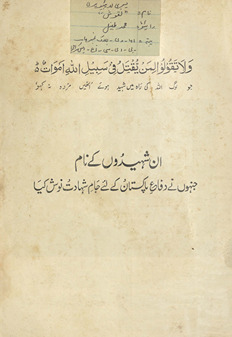 وَلَا تَقُولُوا لِمَنْ يُقْتَلُ فِي سَبِيلِ اللهِ أَمْوَاتٌ ط
جو لوگ اللہ کی راہ میں شہید ہوئے انہیں مردہ نہ کہو
ان شہیدوں کے نام
جنہوں نے دفاعِ پاکستان کے لئے جامِ شہادت نوش کیا